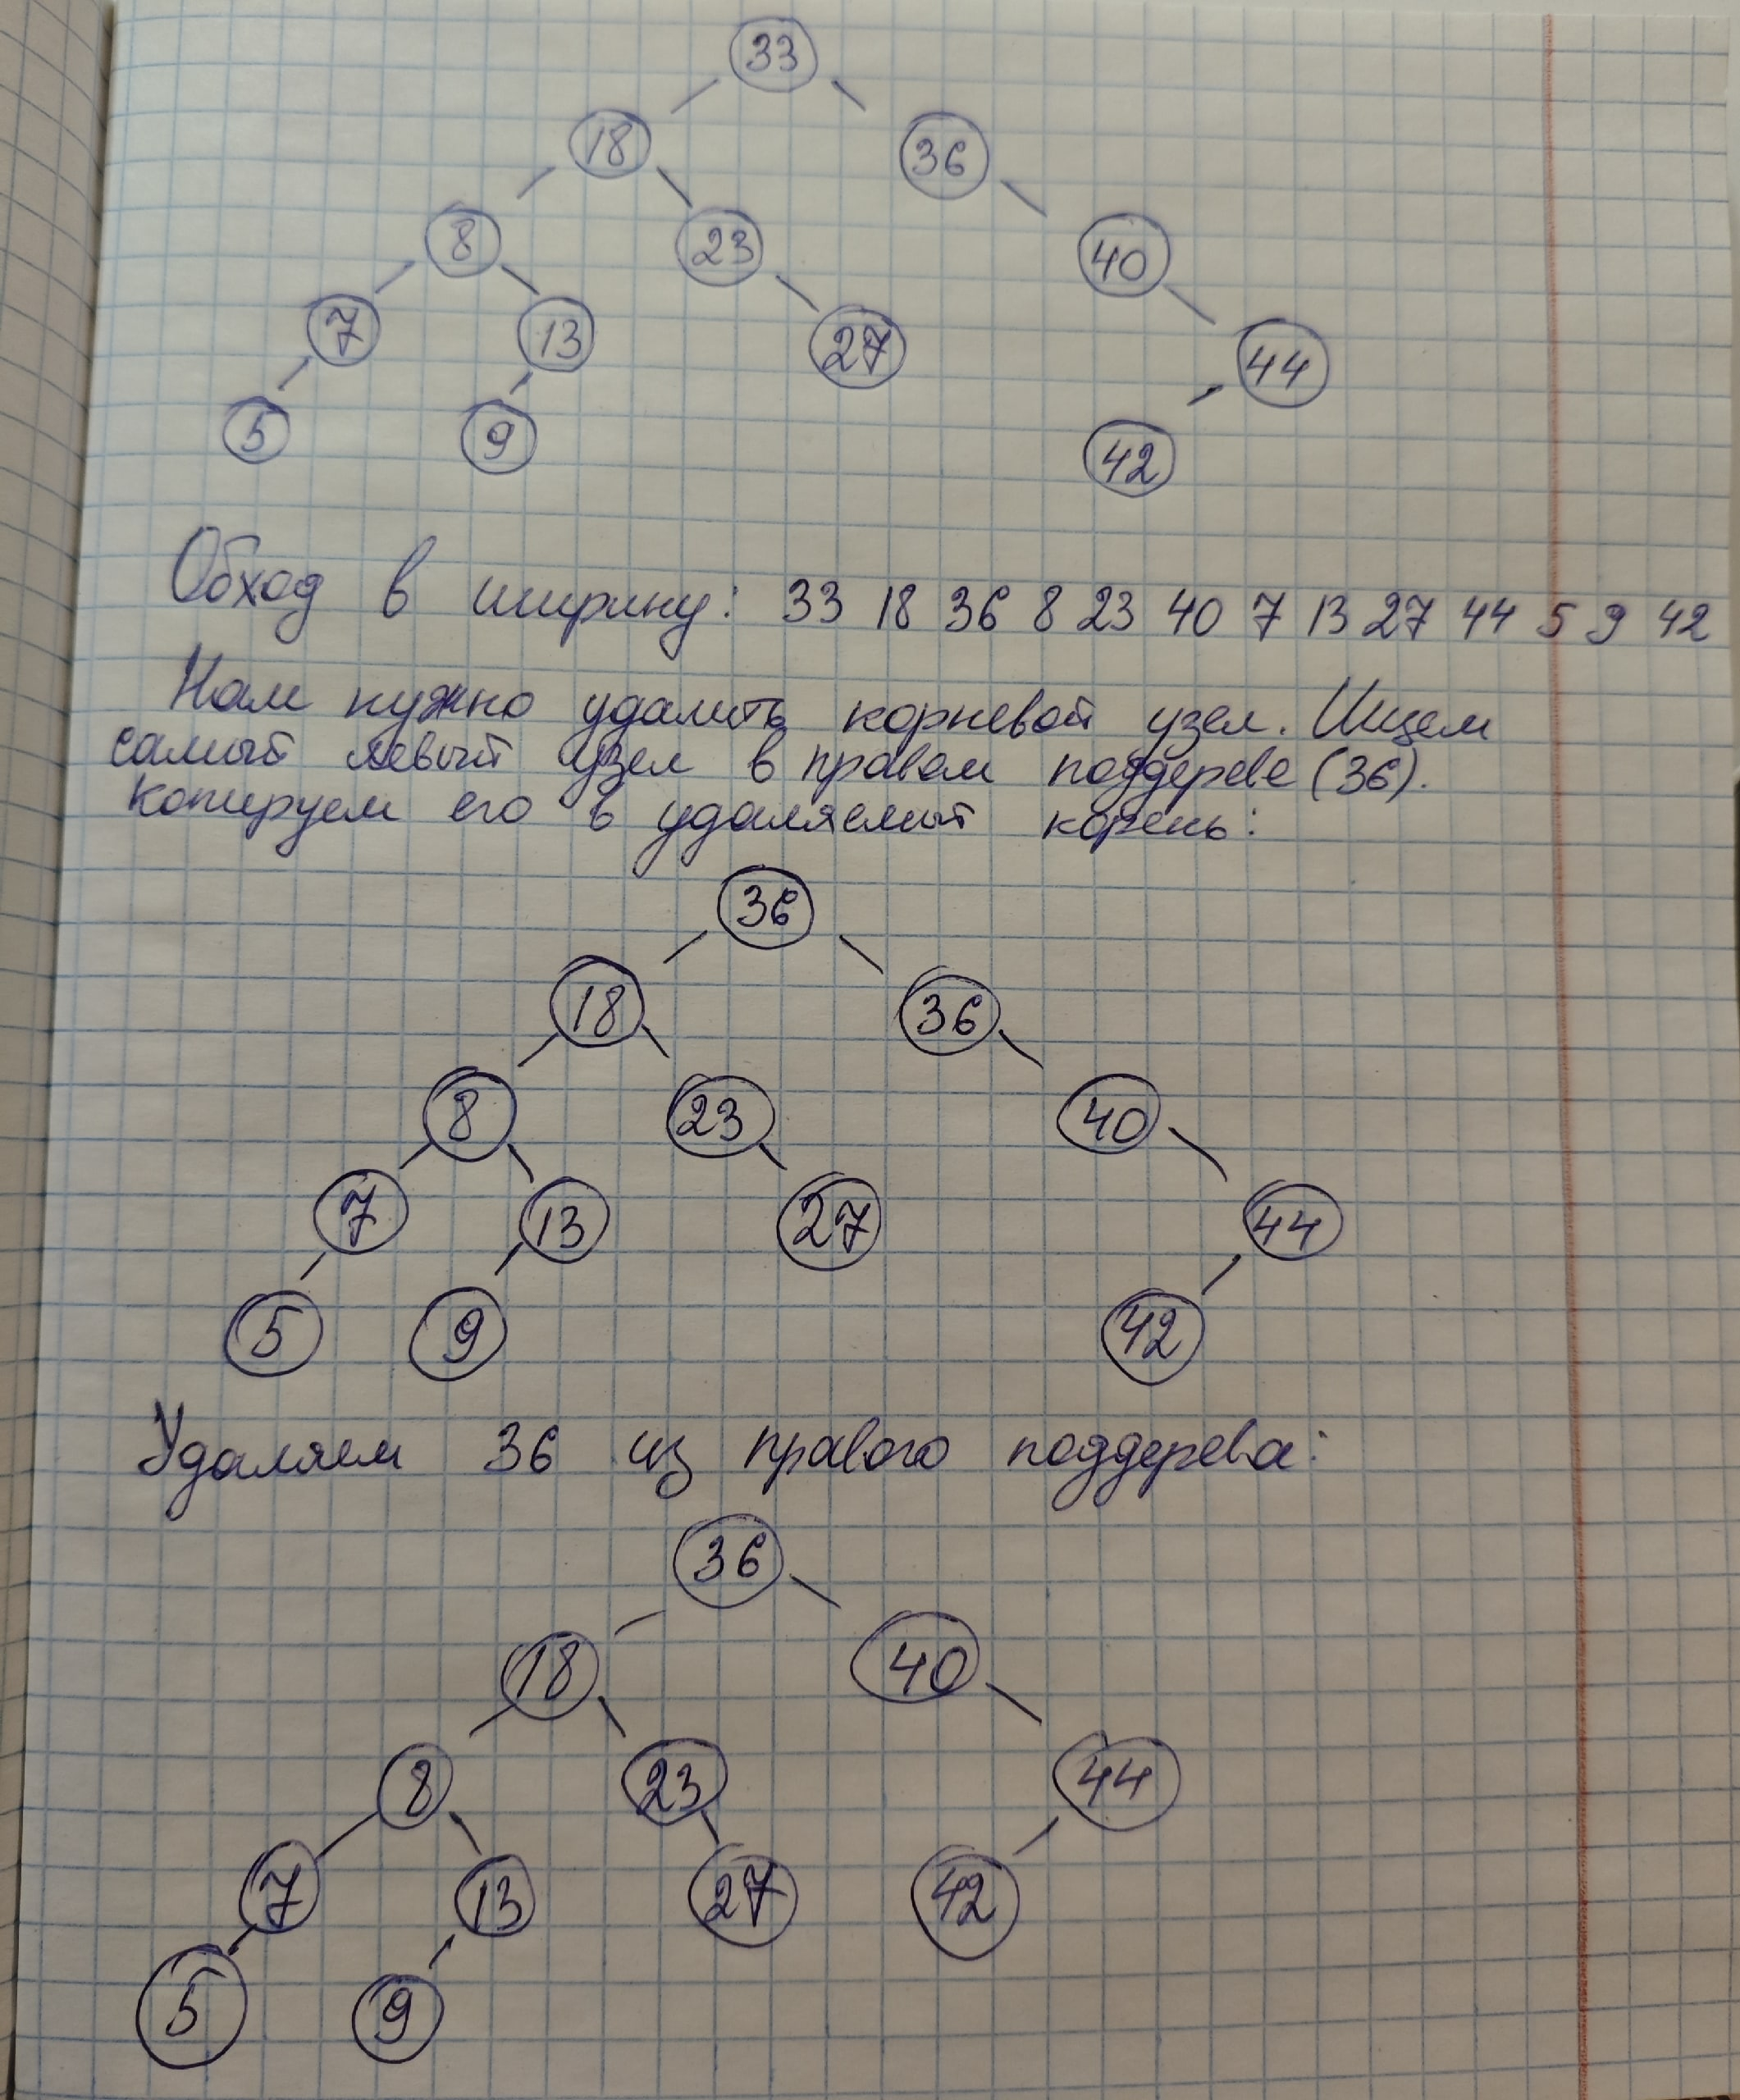 33
18 36
8 23 40
7 13 27 44
5 9 42
Обход в ширину: 33 18 36 8 23 40 7 13 27 44 5 9 42
Нам нужно удалить корневой узел. Ищем
самый левый узел в правом поддереве (36).
Копируем его в удаляемый корень:
36
18 36
8 23 40
7 13 27 44
5 9 42
Удаляем 36 из правого поддерева:
36
18 40
8 23 44
7 13 27 42
5 9